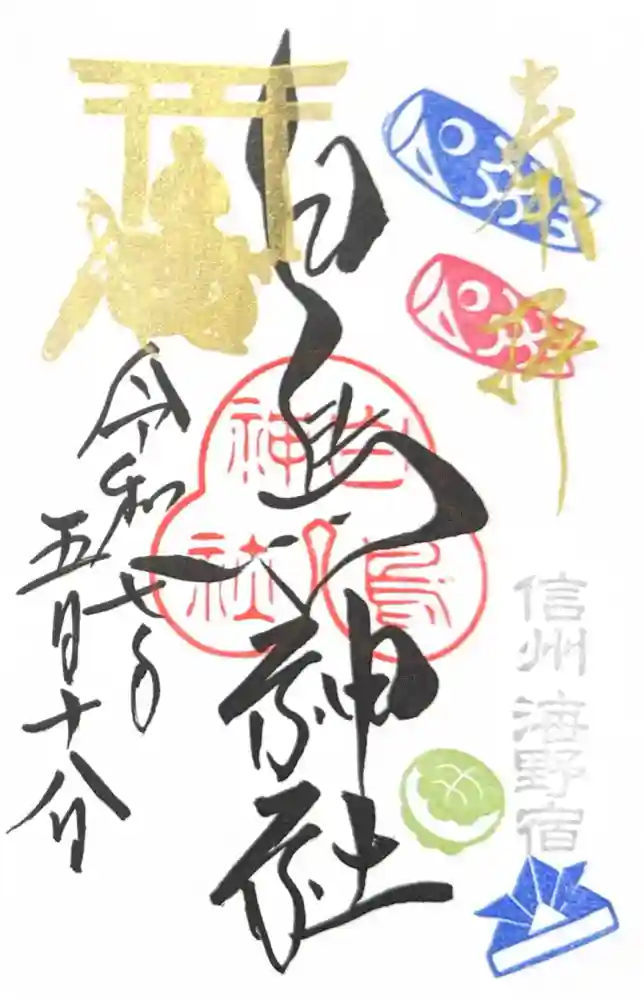 奉拝
信州 海野宿
白鳥神社
白鳥神社
令和七年
五月十八日